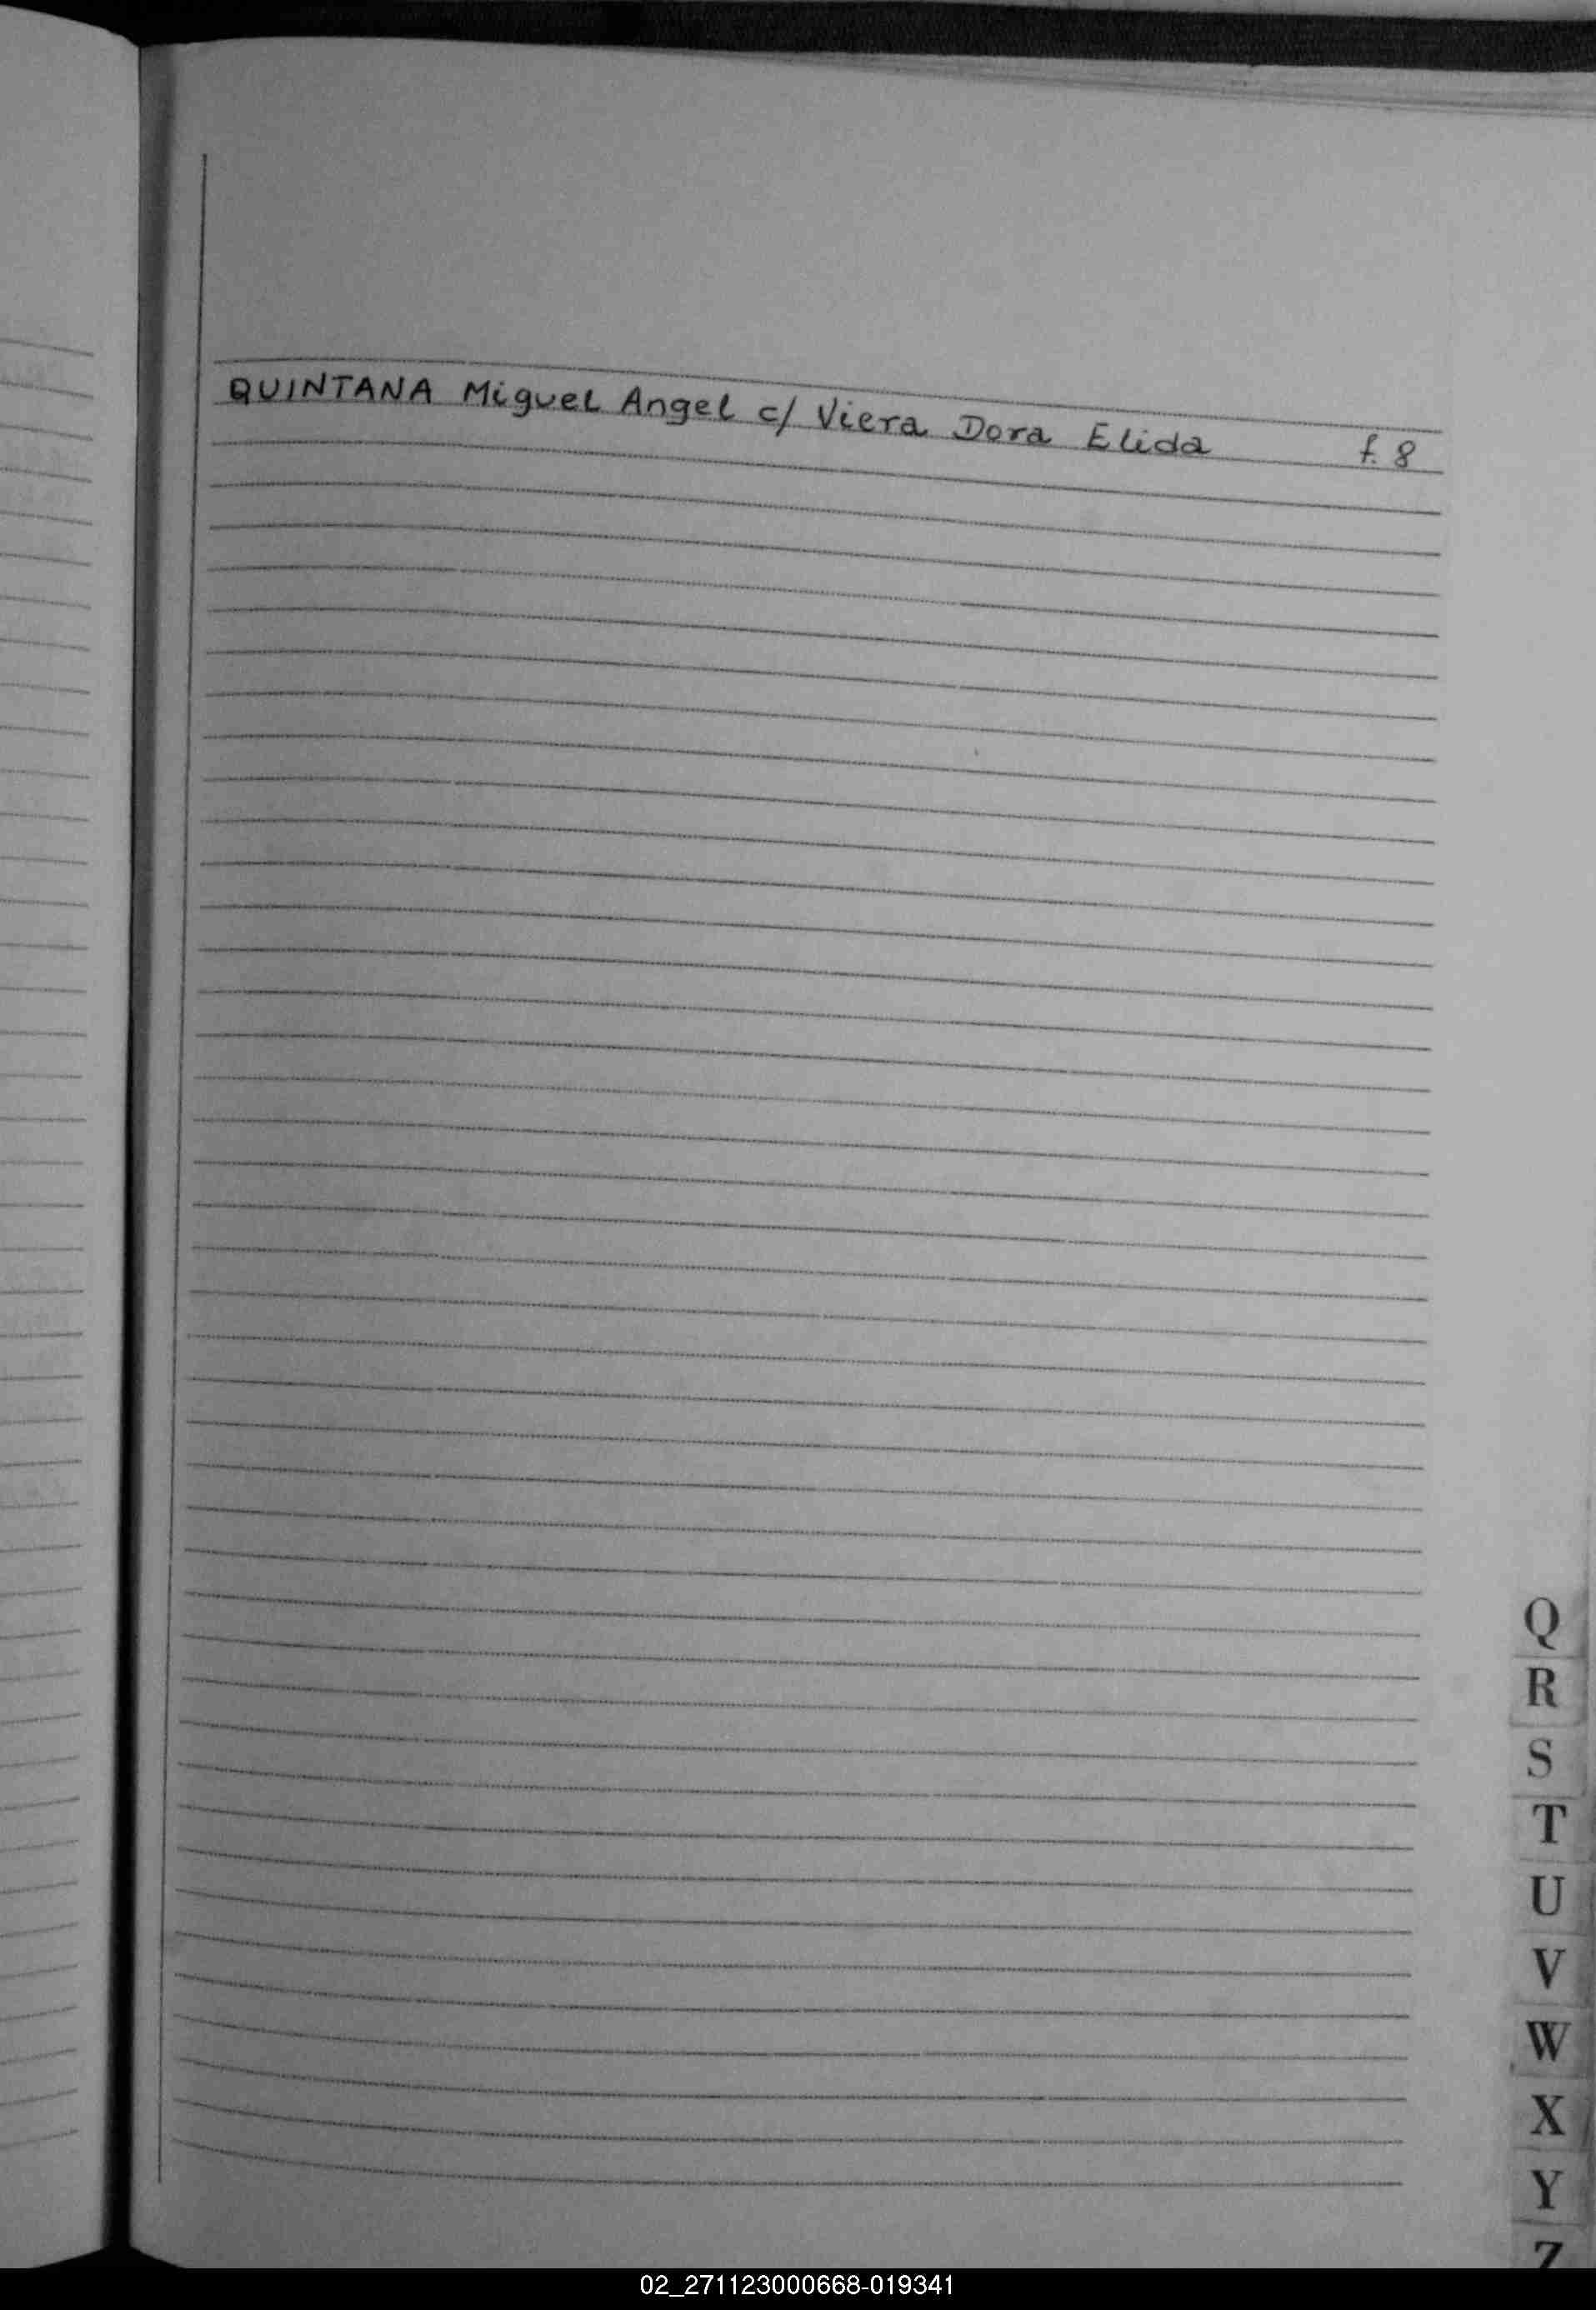 QUINTANA Miguel Angel c/ Viera Dora Elida f. 8
Q
R
S
T
U
V
W
X
Y
Z
02_271123000668-019341